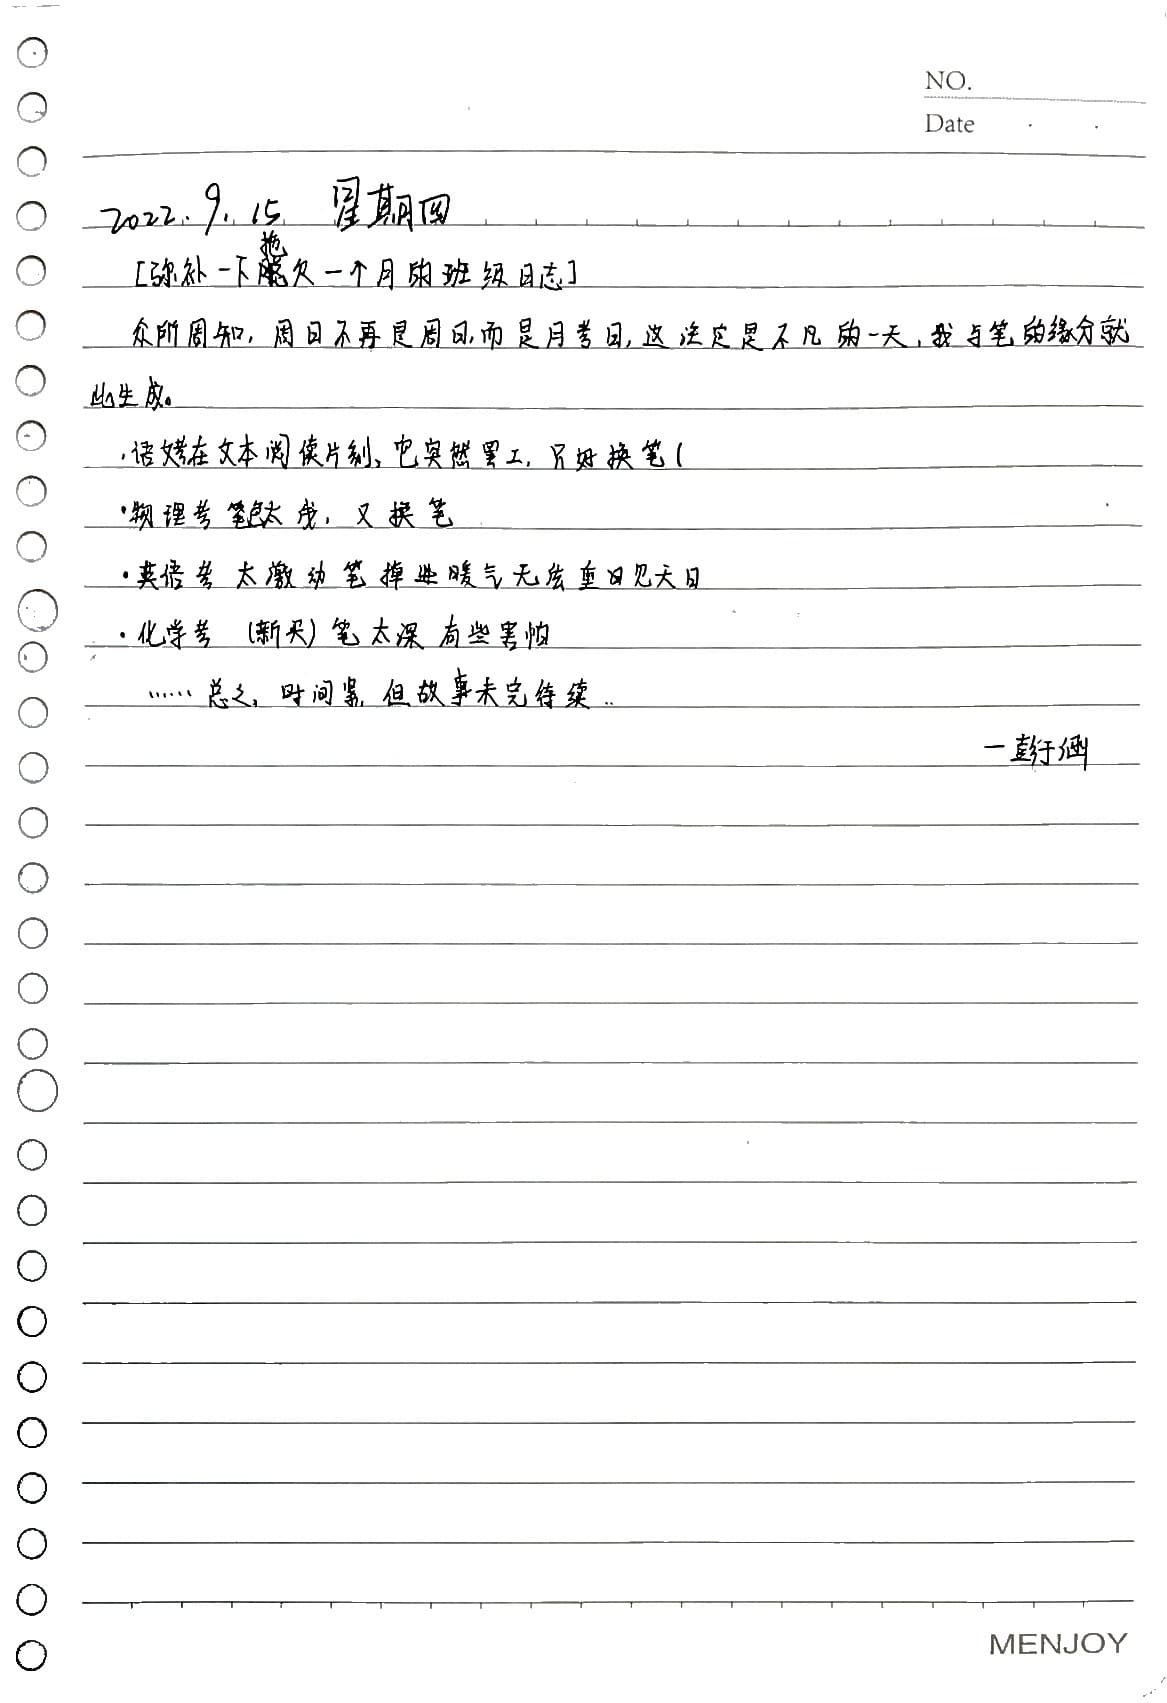 NO.
Date
2022.9.15 星期四
[弥补一下拖欠一个月的班级日志]
众所周知,周日不再是周日,而是月考日,这注定是不凡的一天,我与笔的缘分就
此生成。
·语文考在文本阅读片刻,它突然罢工,只好换笔(
·物理考 笔色太浅,又换笔
·英语考 太激动笔掉进暖气无法重日见天日
·化学考 (新买)笔太深 有些害怕
……总之,时间紧,但故事未完待续..
—彭于涵
MENJOY